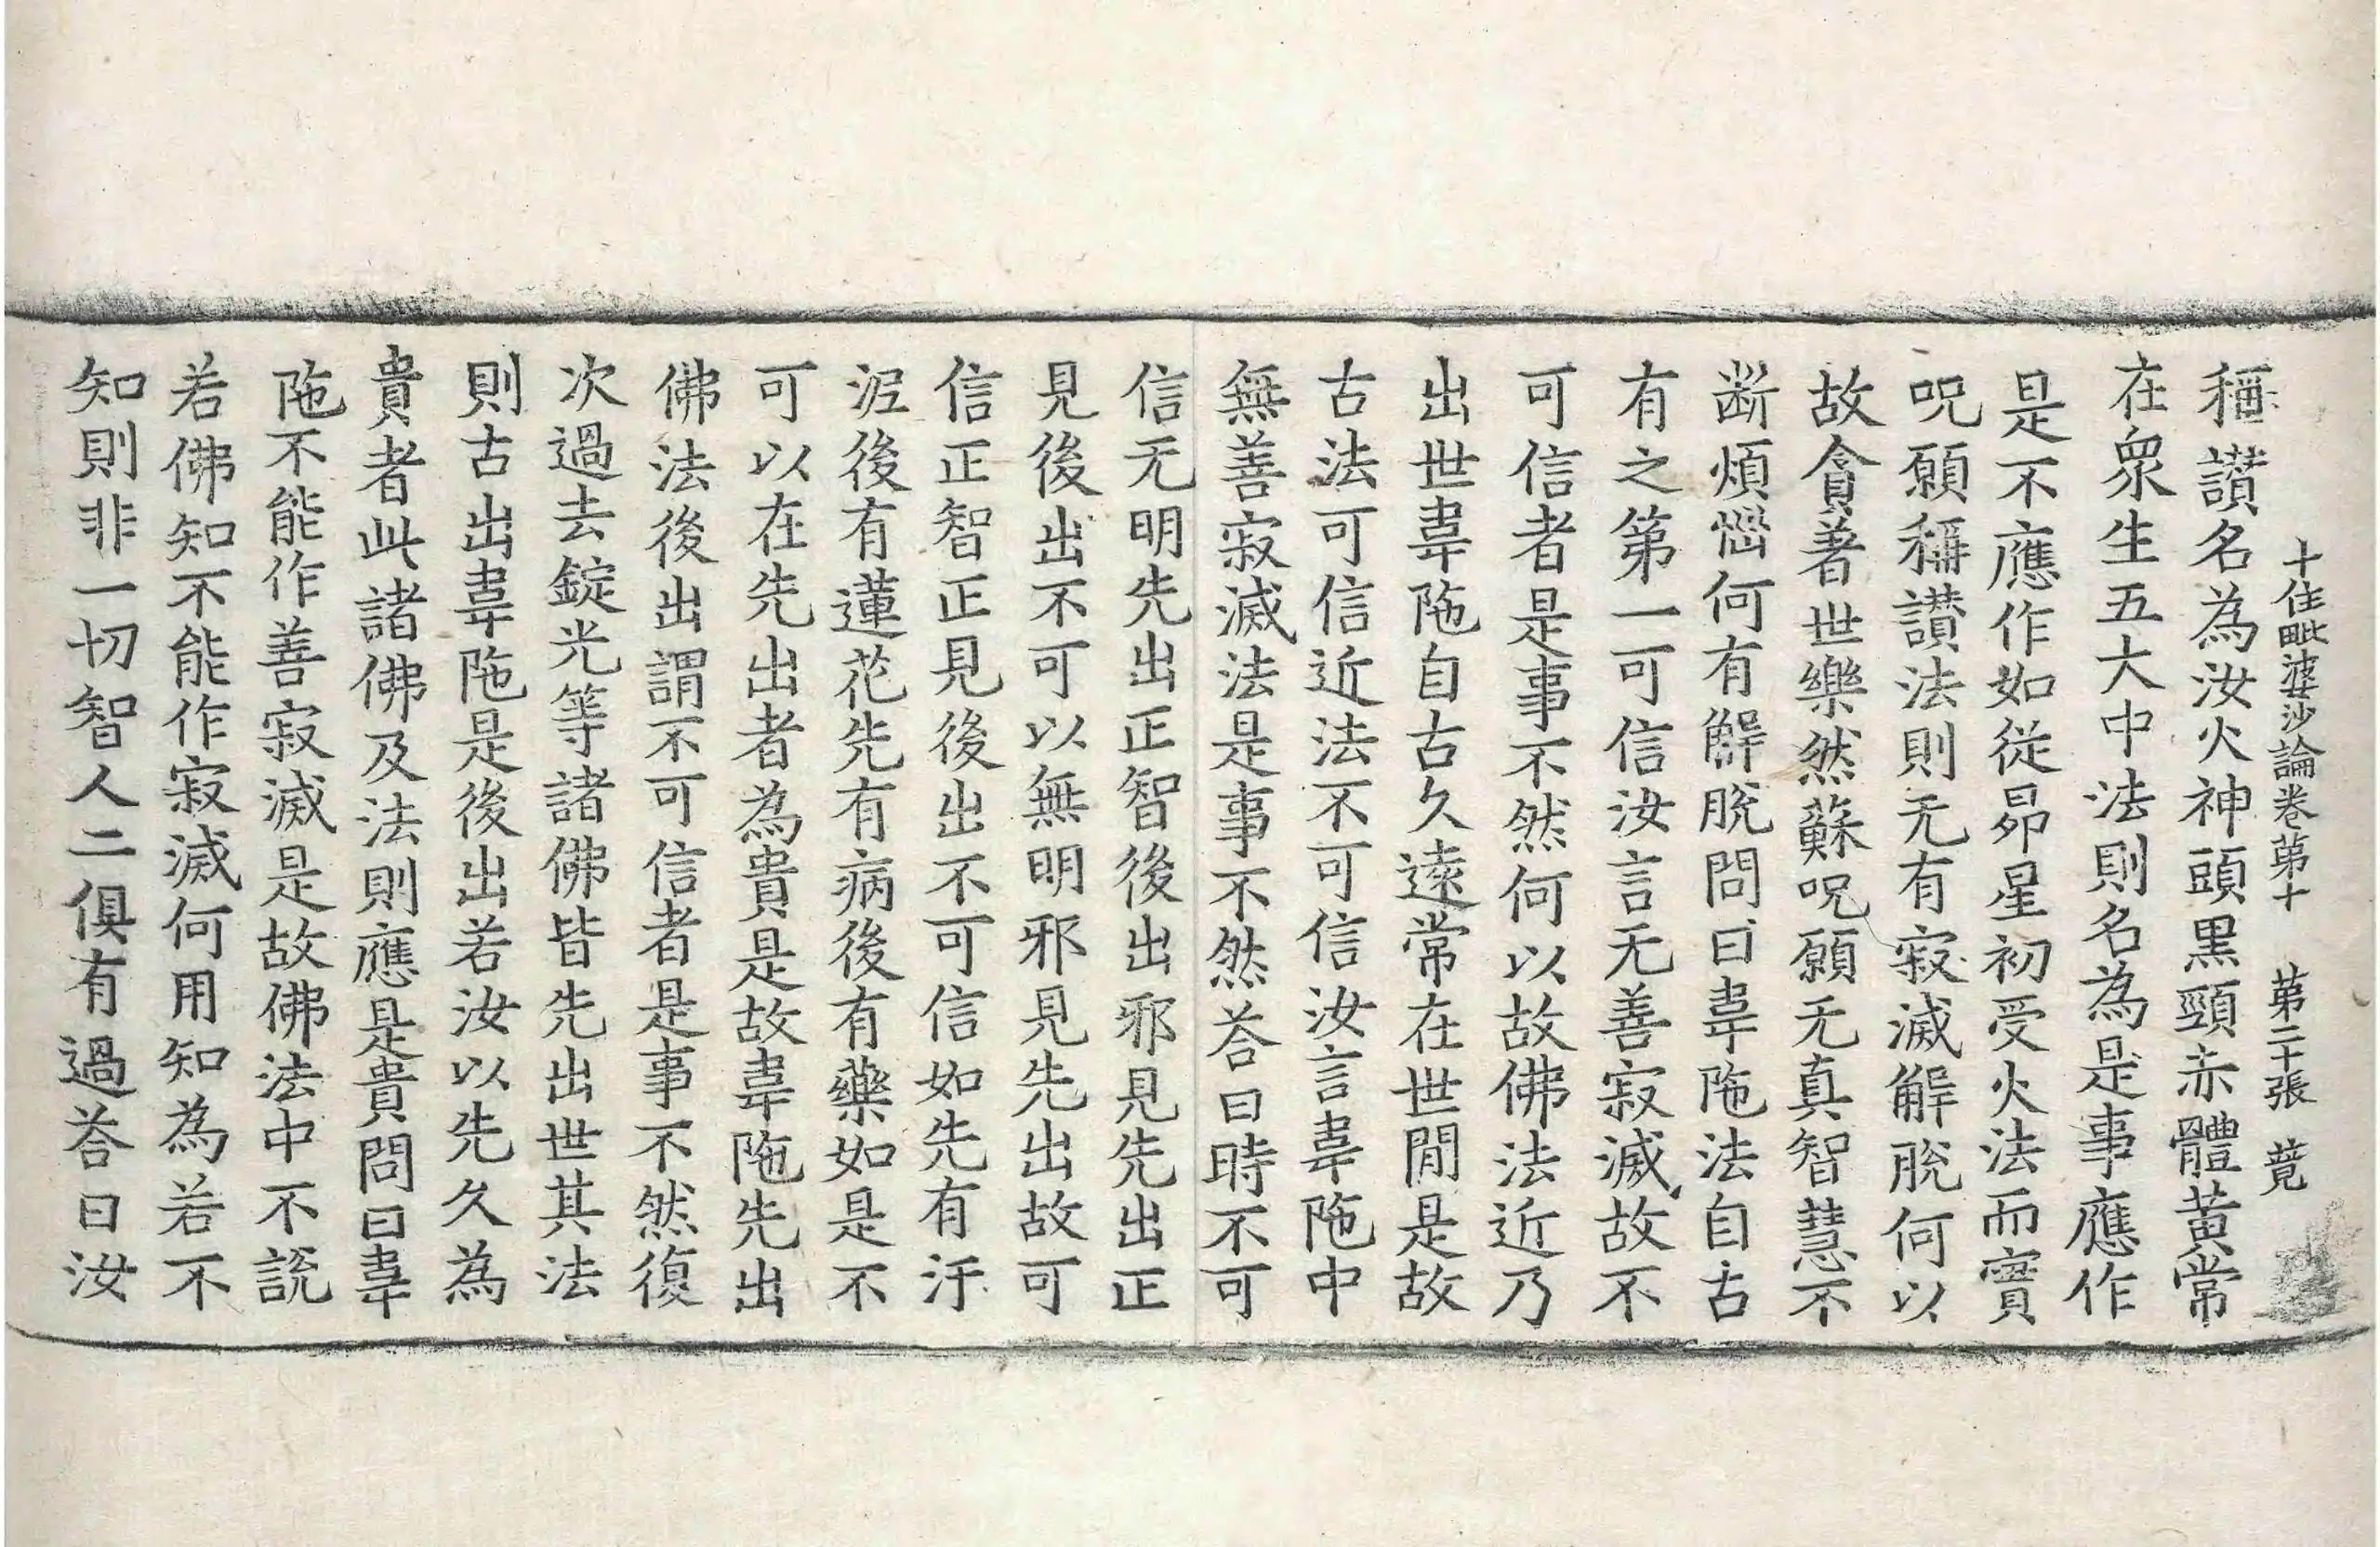 十住毗婆沙論卷第十　第二十張　覓
稱讃名為汝火神頭黑頸赤體黃常
在衆生五大中法則名為是事應作
是不應作如從昴星初受火法而實
呪願稱讃法則无有寂滅解脫何以
故貪著世樂然蘇呪願无真智慧不
斷煩惱何有解脫問曰韋陁法自古
有之第一可信汝言无善寂滅故不
可信者是事不然何以故佛法近乃
出世韋陁自古久遠常在世閒是故
古法可信近法不可信汝言韋陁中
無善寂滅法是事不然荅曰時不可
信无明先出正智後出邪見先出正
見後出不可以無明邪見先出故可
信正智正見後出不可信如先有汙
泥後有蓮花先有病後有藥如是不
可以在先出者為貴是故韋陁先出
佛法後出謂不可信者是事不然復
次過去錠光等諸佛皆先出世其法
則古出韋陁是後出若汝以先久為
貴者此諸佛及法則應是貴問曰韋
陁不能作善寂滅是故佛法中不說
若佛知不能作寂滅何用知為若不
知則非一切智人二俱有過荅曰汝